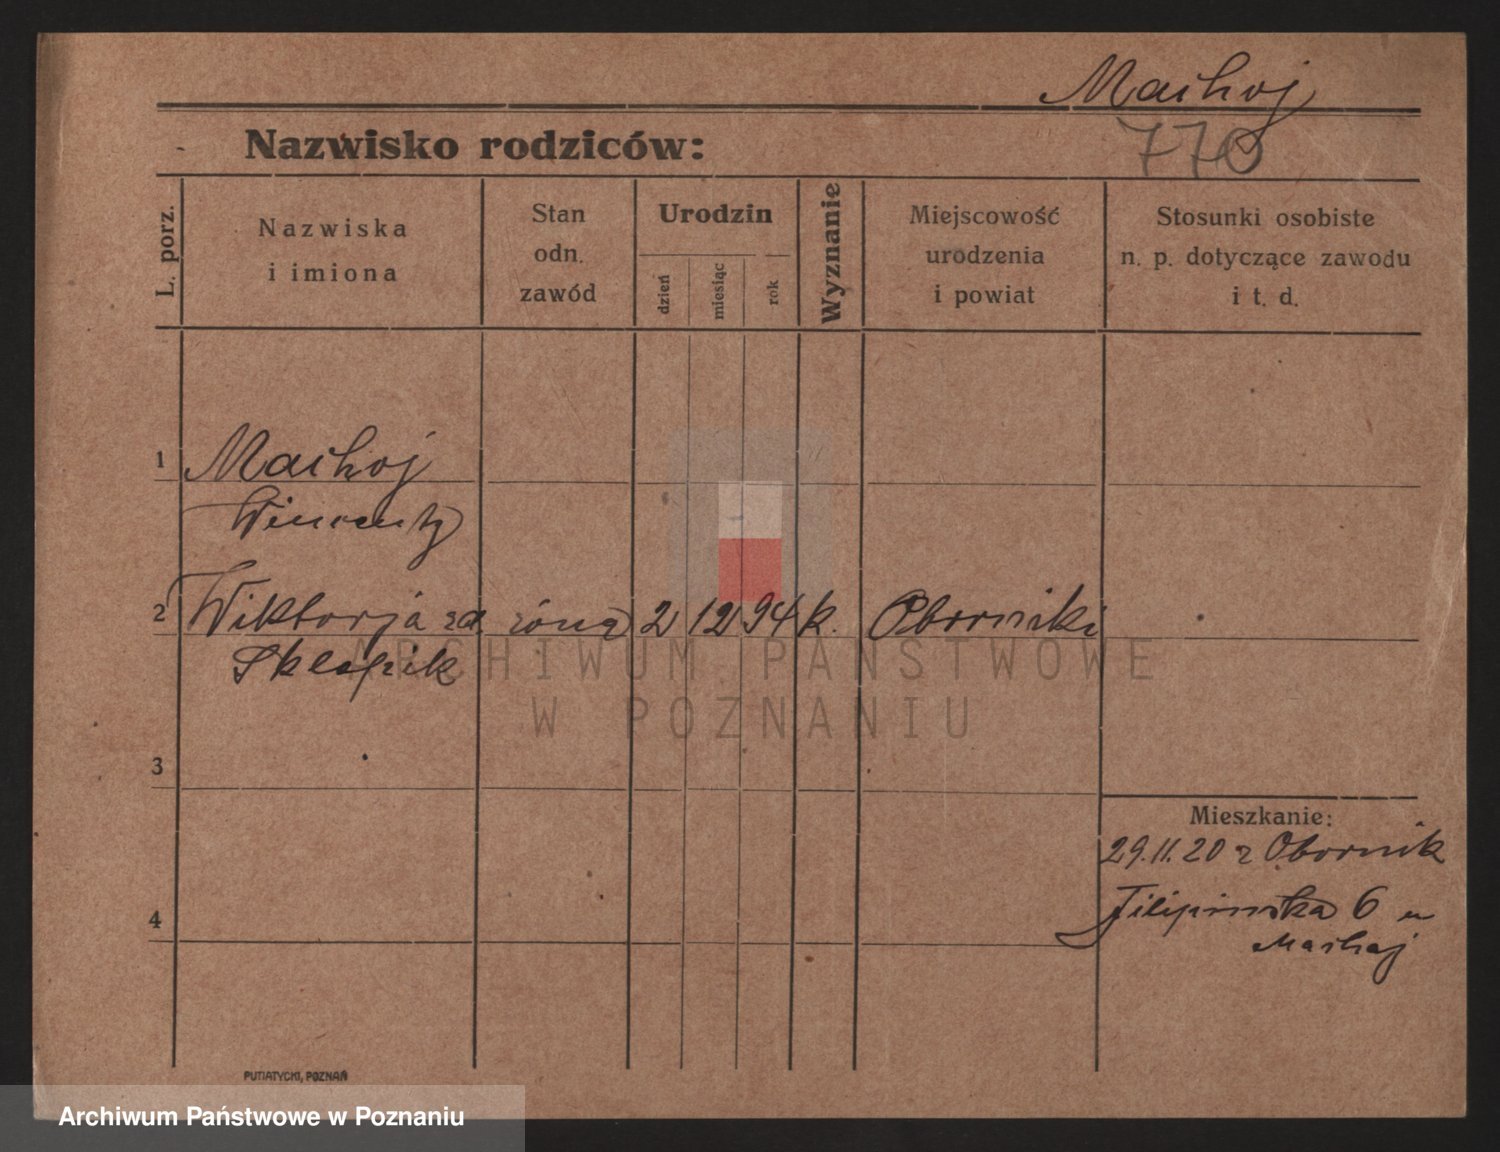 Machoj
Nazwisko rodziców:
770
L. porz.
Nazwiska
i imiona
Stan
odn.
zawód
Urodzin
dzień
miesiąc
rok
Wyznanie
Miejscowość
urodzenia
i powiat
Stosunki osobiste
n. p. dotyczące zawodu
i t. d.
1 Machoj
Wincenty
2 Wiktorja zd. żona 2 12 94 k. Oborniki
ARCHIWUM PAŃSTWOWE
W POZNANIU
3
Mieszkanie:
29.11.20 z Obornik
4
6
Machoj
PUTIATYCKI, POZNAŃ
Archiwum Państwowe w Poznaniu